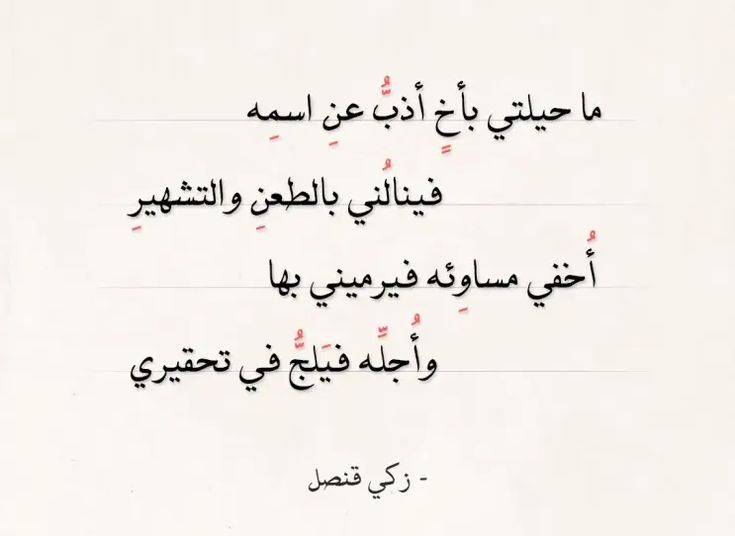 ما حيلتي بأخٍ أذبُّ عنِ اسمِه
فينالُني بالطعنِ والتشهيرِ
أُخفي مساوِئه فيرميني بها
وأُجلِّه فيَلجُّ في تحقيري
- زكي قنصل